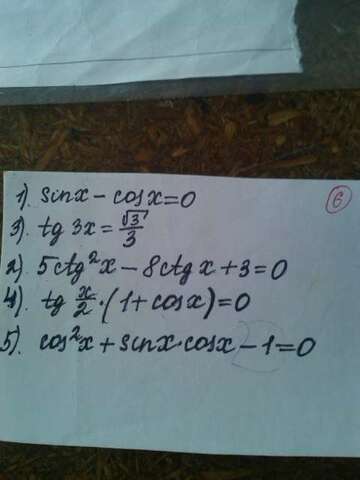 6
1). sinx - cosx = 0
3). tg 3x = √3/3
2). 5ctg²x - 8ctgx + 3 = 0
4). tg x/2 · (1 + cosx) = 0
5). cos²x + sinx·cosx - 1 = 0